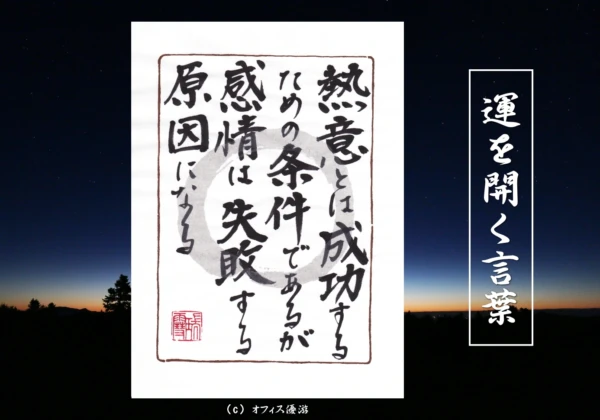 運を開く言葉
熱意とは成功する
ための条件であるが
感情は失敗する
原因になる
(c) オフィス優游